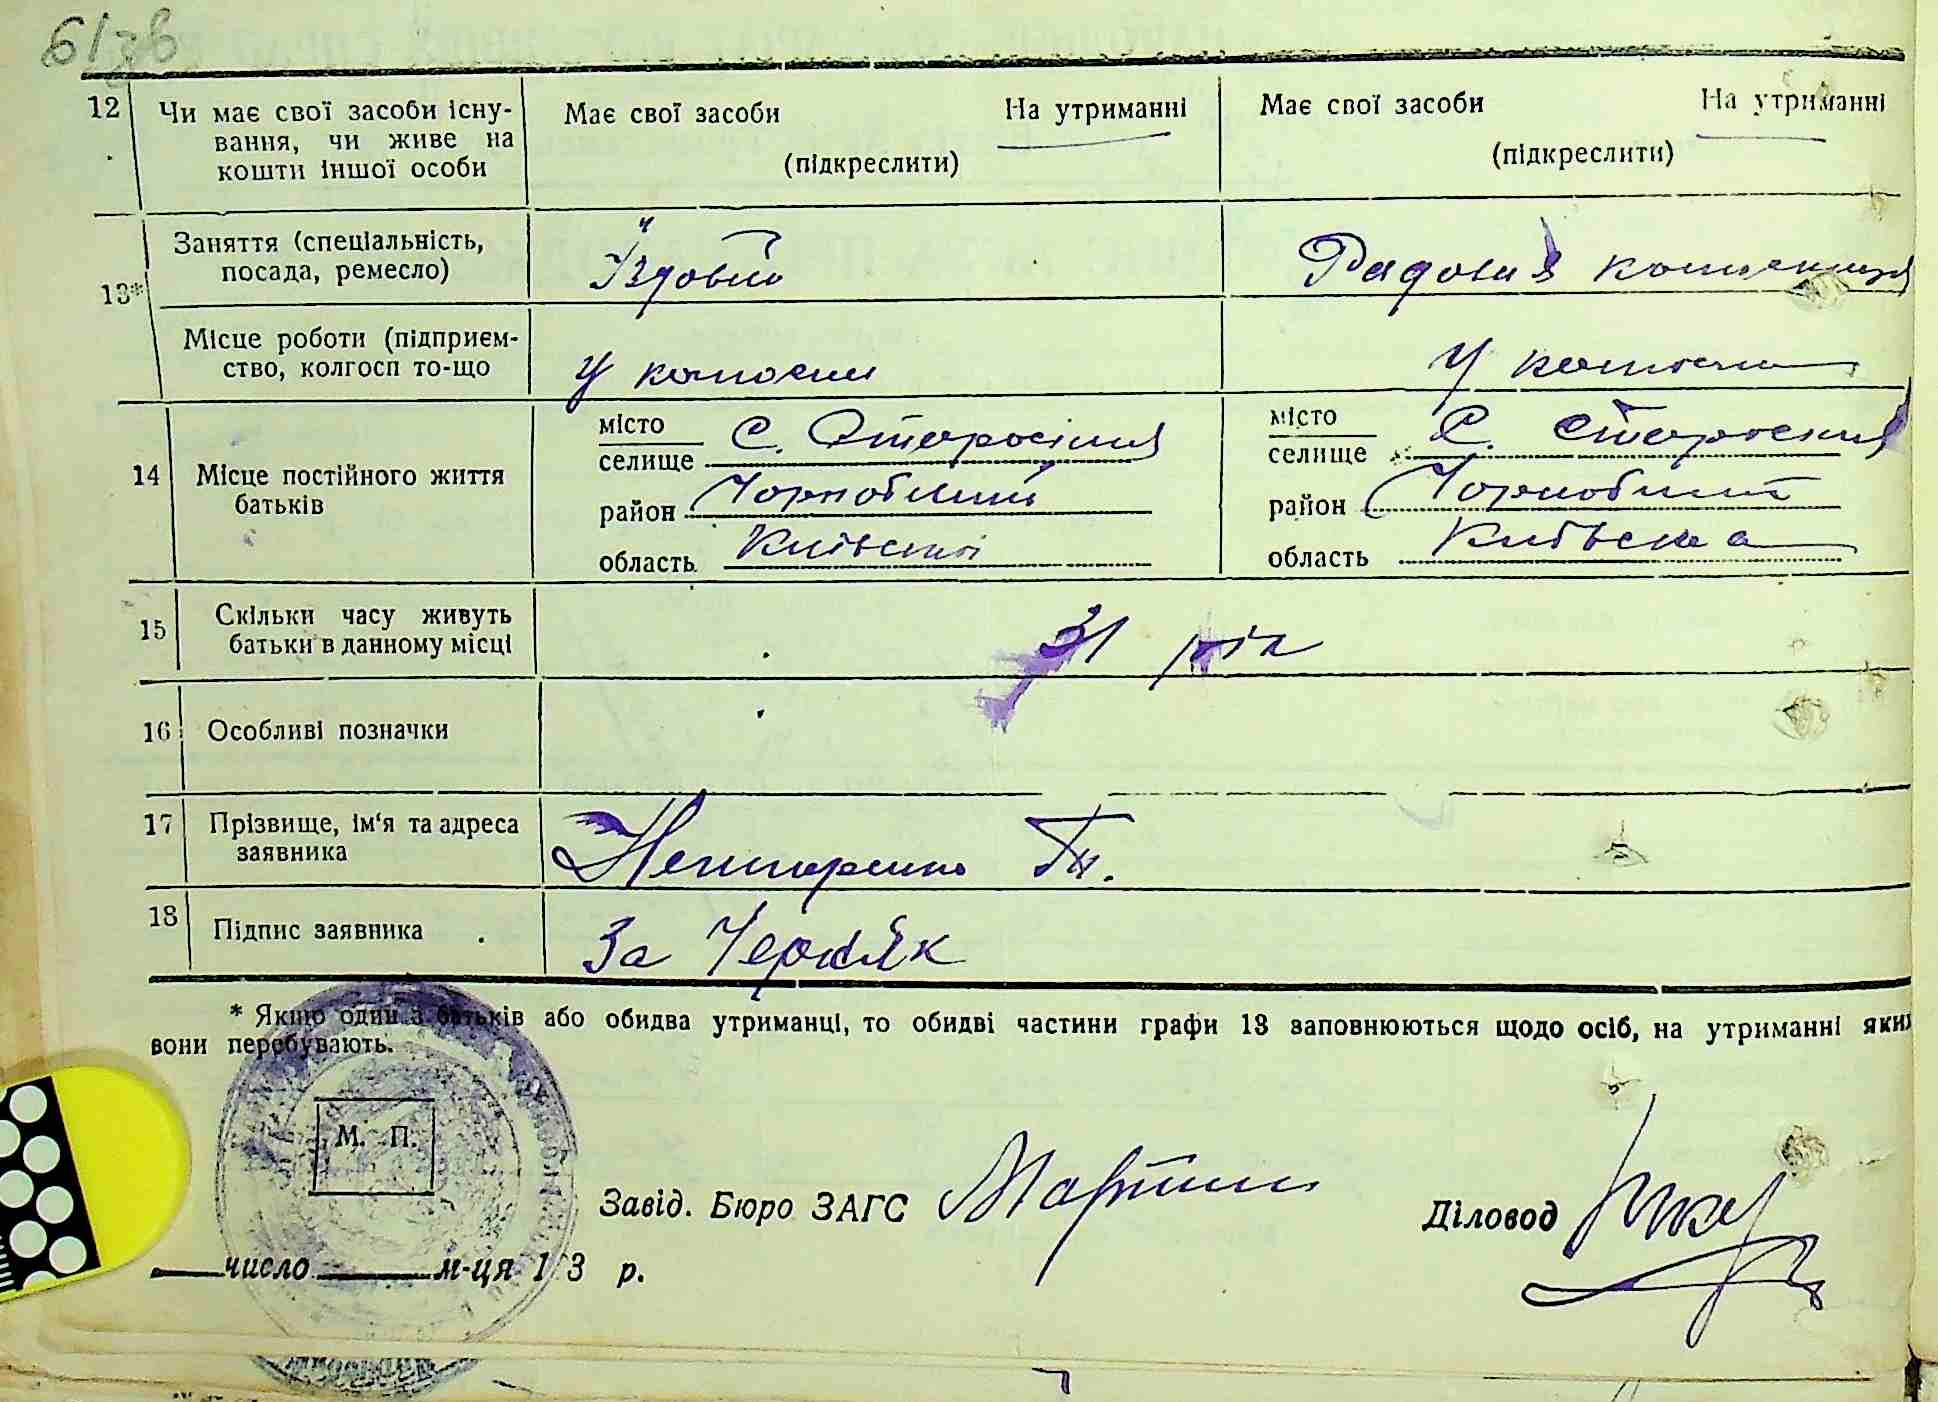 12 Чи має свої засоби існу-
вання, чи живе на
кошти іншої особи
Має свої засоби На утриманні
(підкреслити)
Має свої засоби На утриманні
(підкреслити)
13*
Заняття (спеціальність,
посада, ремесло)
Їздовий
Рядова колгоспниця
Місце роботи (підприєм-
ство, колгосп то-що
У колгоспі
У колгоспі
14 Місце постійного життя
батьків
місто
селище С. Старосілля
район Чорнобильський
область Київській
місто
селище С. Старосілля
район Чорнобильський
область Київська
15 Скільки часу живуть
батьки в данному місці
31 рік
16 Особливі позначки
17 Прізвище, ім'я та адреса
заявника
18 Підпис заявника
За Черв'як
* Якщо один з батьків або обидва утриманці, то обидві частини графи 13 заповнюються щодо осіб, на утриманні яких
вони перебувають.
М. П.
Завід. Бюро ЗАГС
Діловод
число м-ця 193 р.